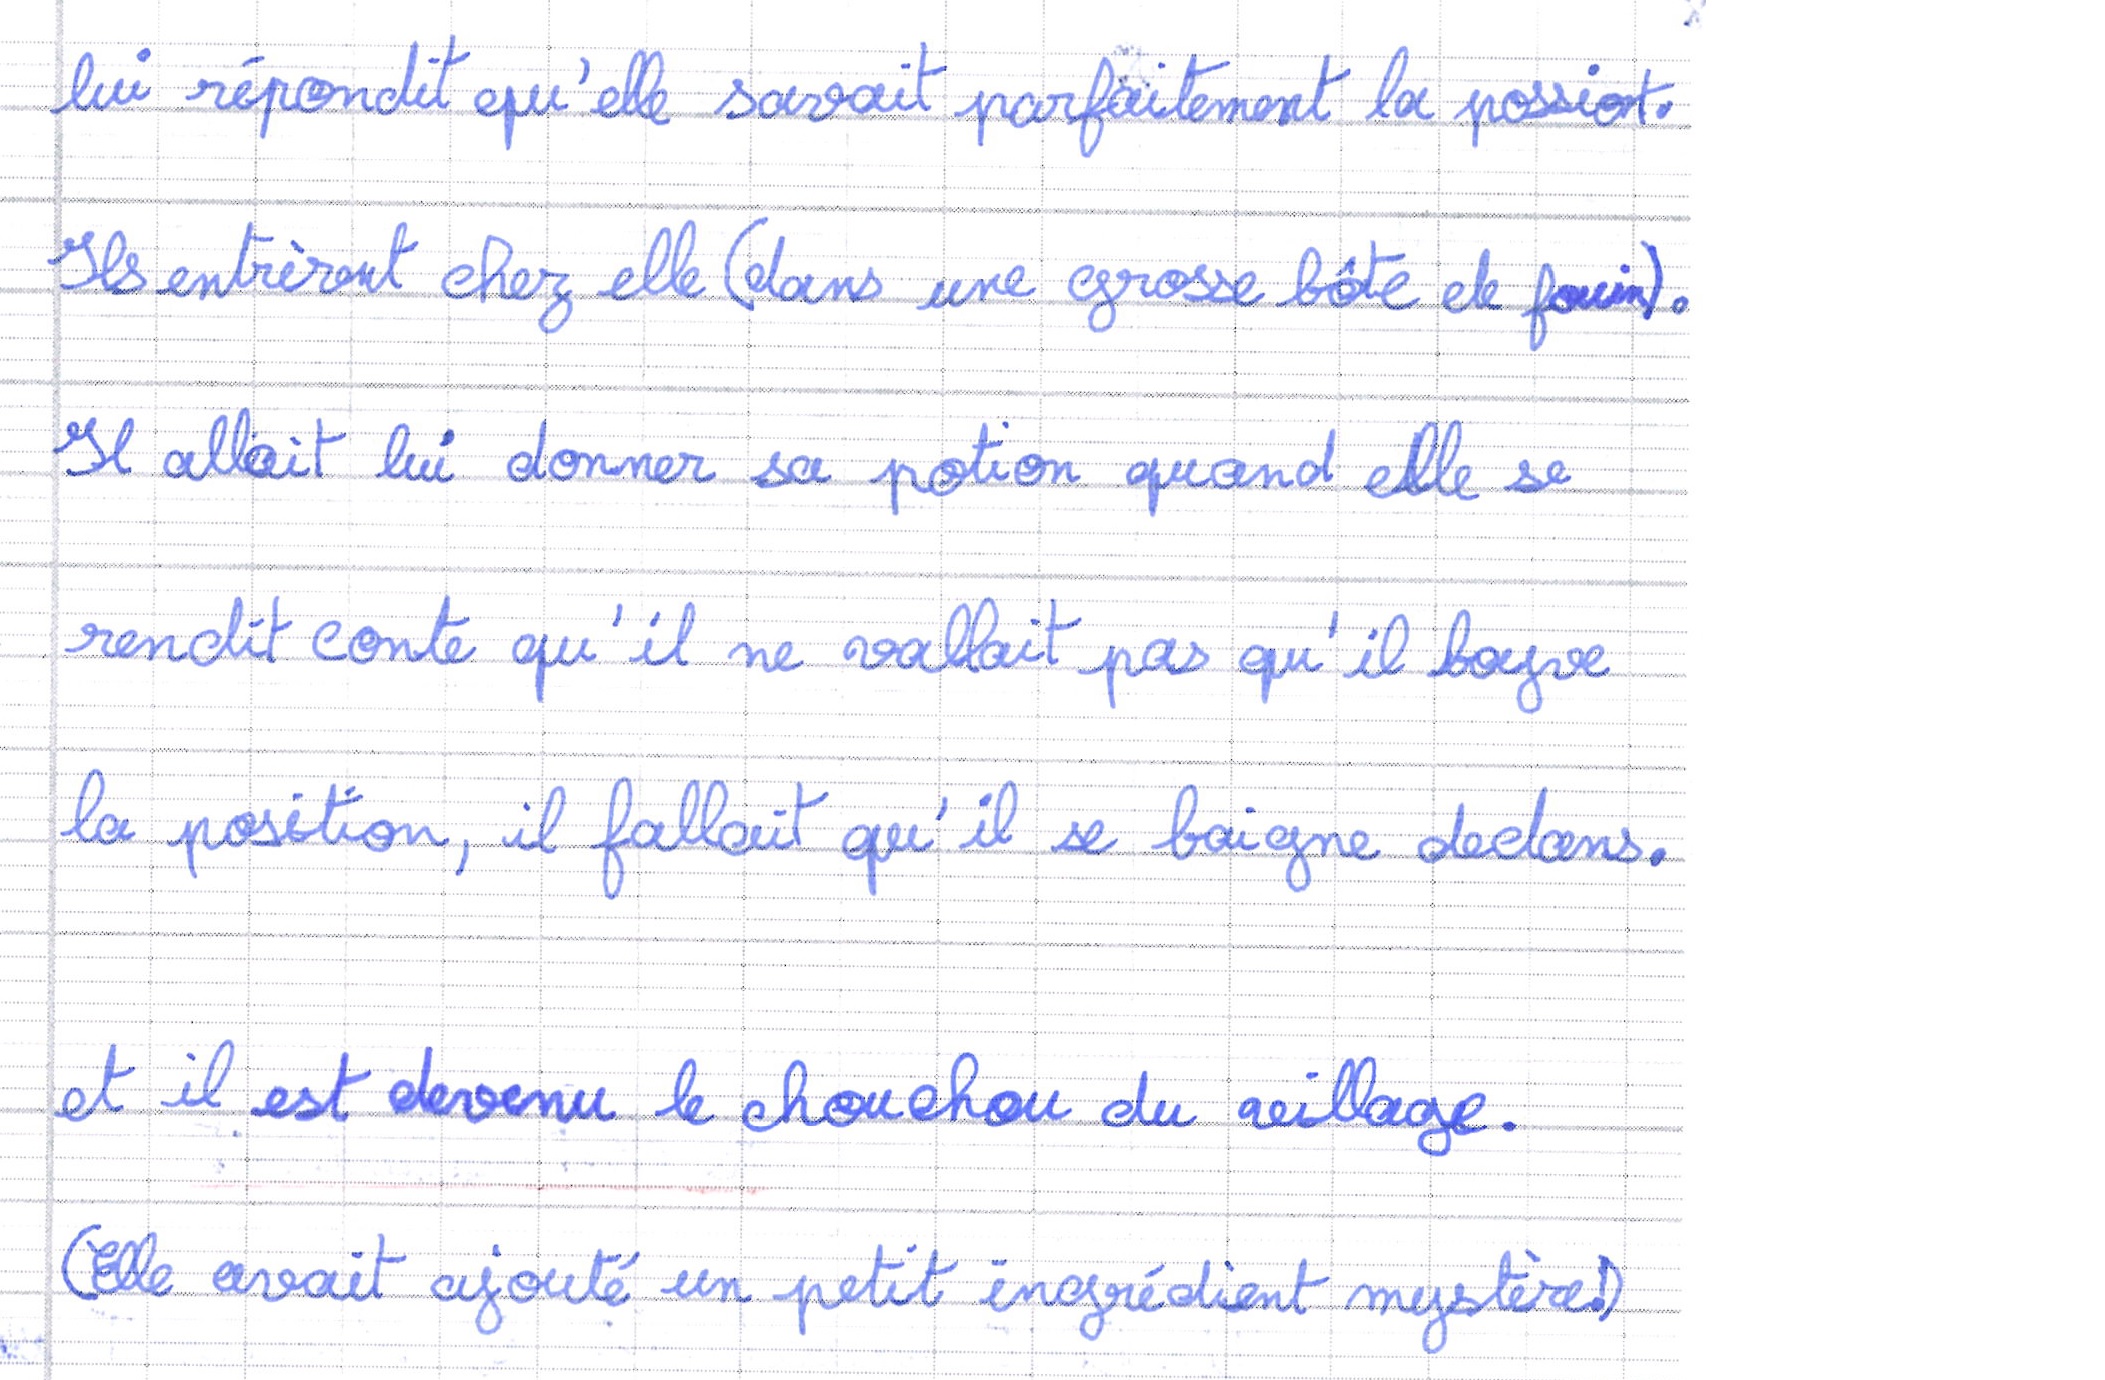 lui répondit qu'elle savait parfaitement la possiont.
Ils entrèrent chez elle (dans une grosse bôte de fouin).
Il allait lui donner sa potion quand elle se
rendit conte qu'il ne vallait pas qu'il bayve
la position, il fallait qu'il se baigne dedans.
et il est devenu le chouchou du village.
(Elle avait ajouté un petit ingrédient mystère!)